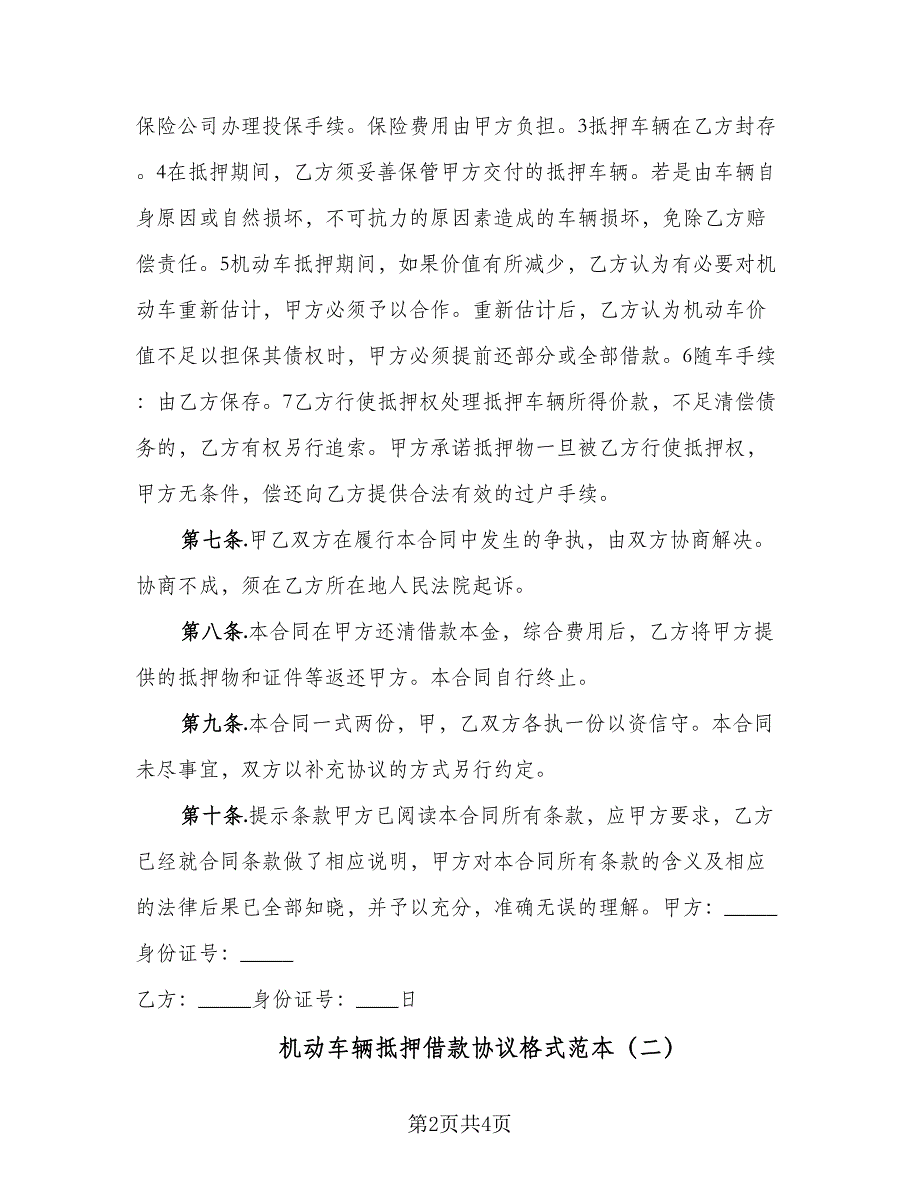 保险公司办理投保手续。保险费用由甲方负担。3抵押车辆在乙方封存
。4在抵押期间，乙方须妥善保管甲方交付的抵押车辆。若是由车辆自
身原因或自然损坏，不可抗力的原因素造成的车辆损坏，免除乙方赔
偿责任。5机动车抵押期间，如果价值有所减少，乙方认为有必要对机
动车重新估计，甲方必须予以合作。重新估计后，乙方认为机动车价
值不足以担保其债权时，甲方必须提前还部分或全部借款。6随车手续
：由乙方保存。7乙方行使抵押权处理抵押车辆所得价款，不足清偿债
务的，乙方有权另行追索。甲方承诺抵押物一旦被乙方行使抵押权，
甲方无条件，偿还向乙方提供合法有效的过户手续。
第七条.甲乙双方在履行本合同中发生的争执，由双方协商解决。
协商不成，须在乙方所在地人民法院起诉。
第八条.本合同在甲方还清借款本金，综合费用后，乙方将甲方提
供的抵押物和证件等返还甲方。本合同自行终止。
第九条.本合同一式两份，甲，乙双方各执一份以资信守。本合同
未尽事宜，双方以补充协议的方式另行约定。
第十条.提示条款甲方已阅读本合同所有条款，应甲方要求，乙方
已经就合同条款做了相应说明，甲方对本合同所有条款的含义及相应
的法律后果已全部知晓，并予以充分，准确无误的理解。甲方：_____
身份证号：_____
乙方：_____身份证号：____日
机动车辆抵押借款协议格式范本（二）
第2页共4页